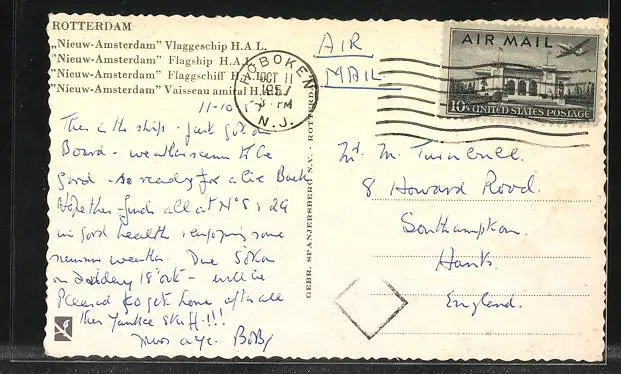 ROTTERDAM
„Nieuw-Amsterdam" Vlaggeschip H.A.L.
„Nieuw-Amsterdam" Flagship H.A.L.
„Nieuw-Amsterdam" Flaggschiff H.A.L.
"Nieuw-Amsterdam" Vaisseau amiral H.A.L.
AIR
MAIL
HOBOKEN
OCT 11
1957
PM
N.J.
AIR MAIL
10¢ UNITED STATES POSTAGE
11-10-57
This is the ship - just got on
Board - weather seems to be
good - so ready for a live Back
Hope find all at Nº 8 & 29
in good health & enjoying some
summer weather. Due Soton
on 18 Oct - will be
Pleased to get home after all
this Yankee Stuff!!!
Bob
GEBR. SPANJERSBERG N.V. - ROTTERDAM
Mr. M. Turnbull.
8 Howard Road.
Southampton.
Hants.
England.